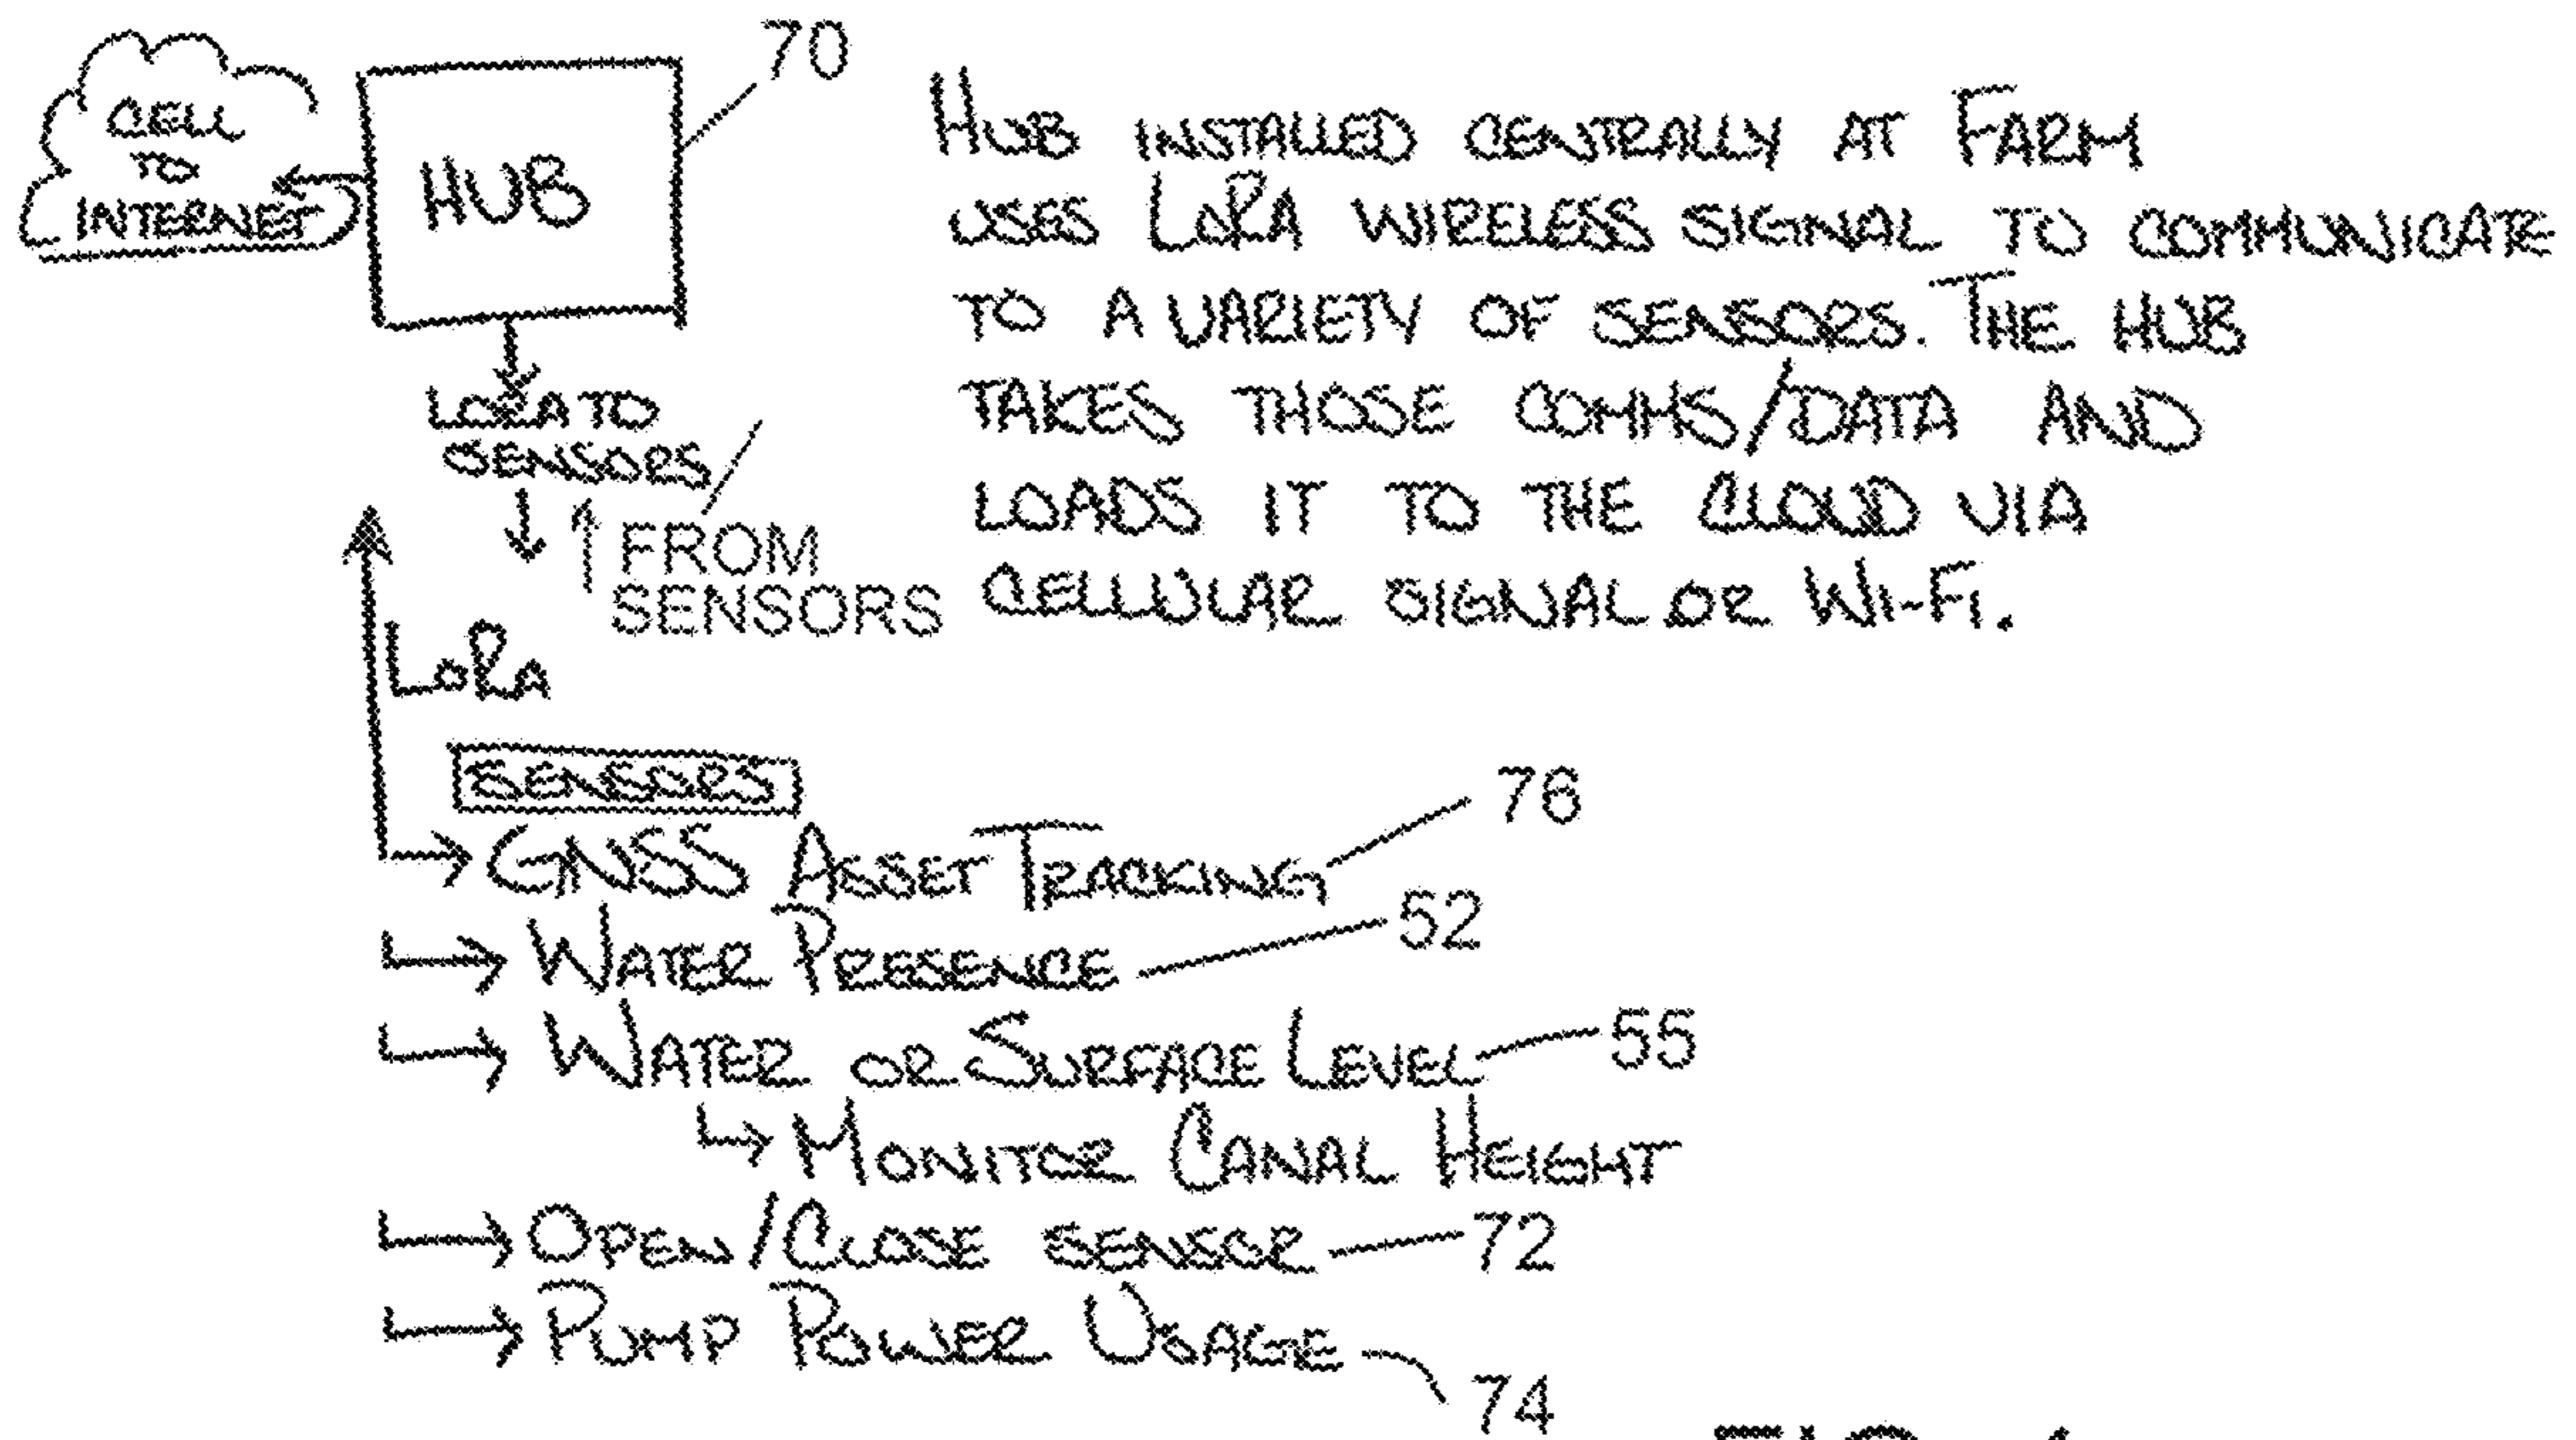 CELL
TO
INTERNET
HUB
70
HUB INSTALLED CENTRALLY AT FARM
USES LoRA WIRELESS SIGNAL TO COMMUNICATE
TO A VARIETY OF SENSORS. THE HUB
TAKES THOSE COMMS/DATA AND
LOADS IT TO THE CLOUD VIA
CELLULAR SIGNAL OR WI-FI.
LORA TO
SENSORS/
FROM
SENSORS
LoRA
SENSORS
GNSS ASSET TRACKING 76
WATER PRESENCE 52
WATER OR SURFACE LEVEL 55
MONITOR CANAL HEIGHT
OPEN/CLOSE SENSOR 72
PUMP POWER USAGE
74